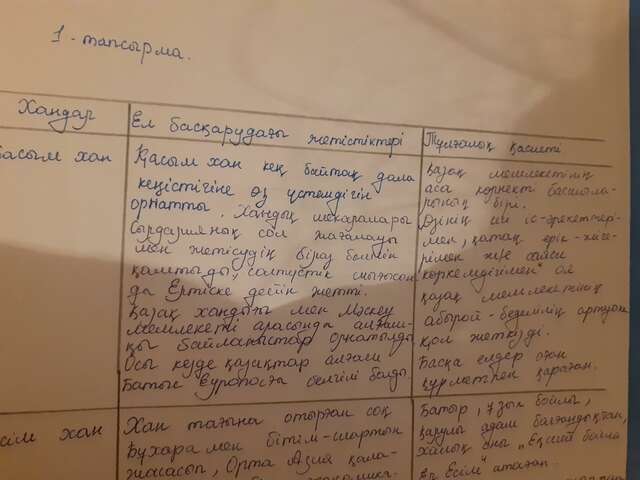 1-тапсырма.
Хандар
Ел басқарудағы жетістіктері
Тұлғалық қасиеті
асым хан
Қасым хан кең байтақ дала
кеңістігіне өз үстемдігін
орнатты. Хандық шекаралары
Сырдарияның сол жағалауы
мен Жетісудің біраз бөлігін
қамтыды, солтүстік
да Ертіске дейін жетті.
Қазақ хандығы мен Мәскеу
мемлекеті арасында алғаш-
қы байланыстар орнатылды
Осы кезде қазақтар алғаш
Батыс Еуропаға белгілі болды.
қазақ мемлекетінің
аса көрнекті басшыла-
рының бірі.
Өзінің іс-әрекеттері-
мен, қатаң ерік-жіге-
рімен және
көркемдігімен ол
қазақ мемлекетінің
абырой-беделінің артуына
қол жеткізді.
Басқа елдер оған
құрметпен қараған.
сім хан
Хан тағына отырған соң
Бұхара мен бітім-шартын
жасасып, Орта Азия қала-
Батыр, ұзын бойлы,
қарулы адам болғандықтан,
халық оны „Еңсегей бойлы
Ер Есім" атаған.